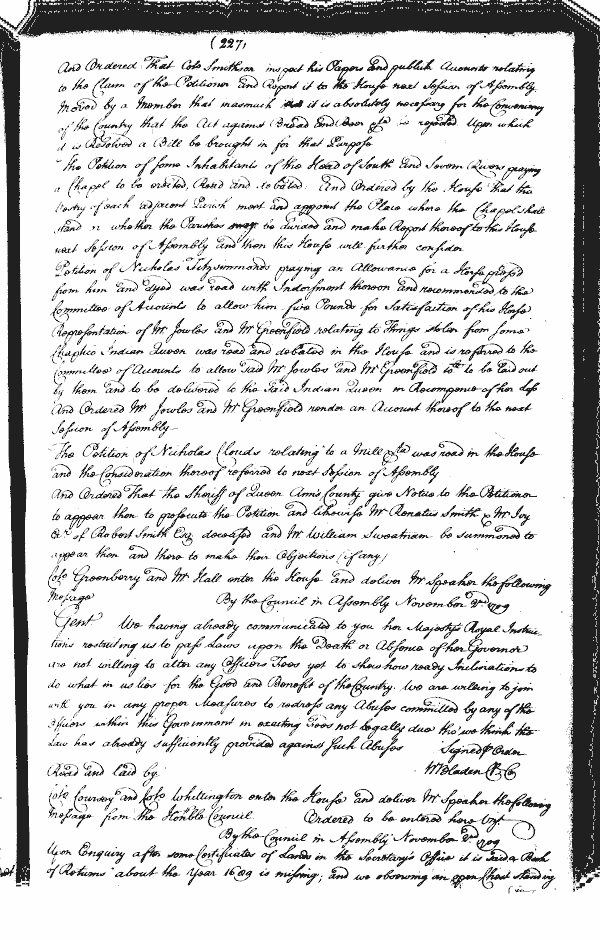 (227)
And Ordered That Colo Smithson inspect his Papers and publick Accounts relating
to the Claim of the Petitioner and Report it to the House next Session of Assembly.
Moved by a Member that inasmuch it is absolutely necessary for the Conveniency
of the Country that the Act against Bread and Beer &ca is repealed Upon which
it is Resolved a Bill be brought in for that Purpose
The Petition of some Inhabitants of the Head of South and Severn Rivers praying
a Chapel to be erected, Read and debated. And Ordered by the House that the
Vestry of each adjacent Parish meet and appoint the Place where the Chapel shall
stand or whether the Parishes may be divided and make Report thereof to this House
next Session of Assembly and then this House will further consider
Petition of Nicholas Fitzsimmonds praying an Allowance for a Horse pressed
from him and Dyed was read with Indorsment thereon and recommended to the
Committee of Accounts to allow him five Pounds for Satisfaction of his Horse
Representation of Mr Jowles and Mr Greenfield relating to Things stolen from some
Chaptico Indian Queen was read and debated in the House and is referred to the
Committee of Accounts to allow said Mr Jowles and Mr Greenfield to be laid out
by them and to be delivered to the said Indian Queen in Recompence of her loss
And Ordered Mr Jowles and Mr Greenfield render an Account thereof to the next
Session of Assembly—
The Petition of Nicholas Clouds relating to a Mill &ca was read in the House
and the Consideration thereof referred to next Session of Assembly
And Ordered That the Sheriff of Queen Ann's County give Notice to the Petitioner
to appear then to prosecute the Petition and likewise Mr Renatus Smith & Mr Ivy
Exr of Robert Smith Esq deceased and Mr William Sweatnam be summoned to
appear then and there to make their Objections (if any)
Colo Greenberry and Mr Hall enter the House and deliver Mr Speaker the following
Message By the Council in Assembly November 2d 1709
Gent We having already communicated to you her Majesty's Royal Instruc
tions restricting us to pass Laws upon the Death or Absence of her Governor
are not willing to alter any Officers Fees yet to shew how ready Inclinations to
do what in us lies for the Good and Benefit of the Country. We are willing to join
with you in any proper Measures to redress any Abuses committed by any of the
Officers within this Government in exacting Fees not legally due tho' we think the
Law has already sufficiently provided against such Abuses Signed p Order
Read and laid by. W Bladen Cl. Co
Colo Coursey and Colo Whittington enter the House and deliver Mr Speaker the following
Message from the Honble Council. Ordered to be entered here Vizt
By the Council in Assembly November 2d 1709
Upon Enquiry after some Certificates of Lands in the Secretary's Office it is said a Book
of Returns about the Year 1689 is missing; and we observing an open Chest standing